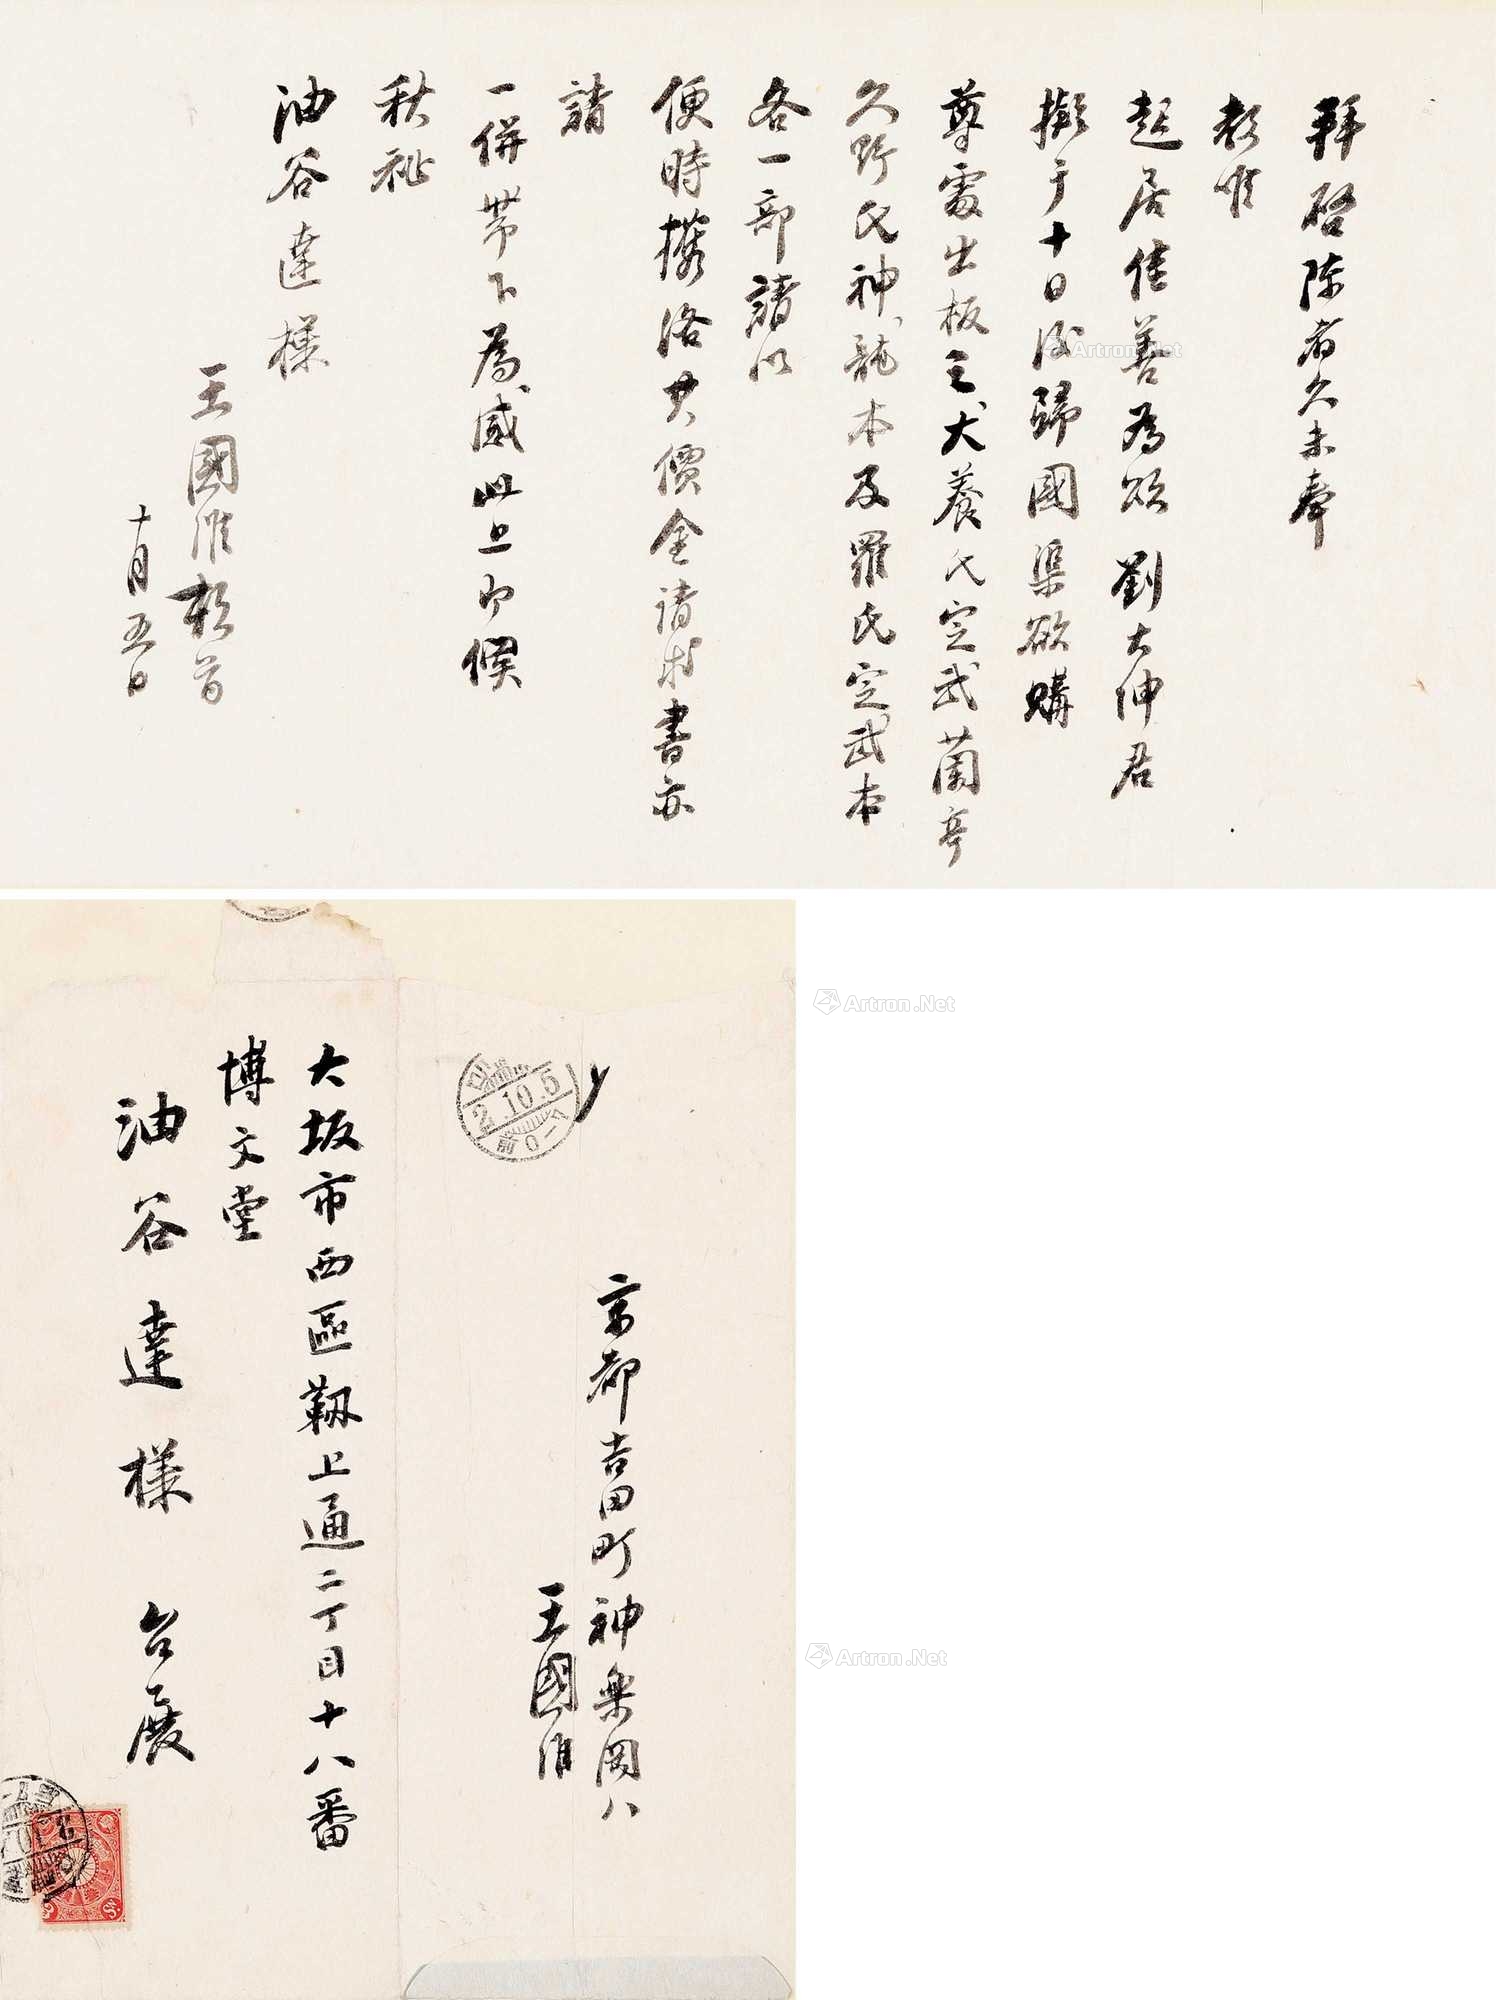 拜啓陳者久未奉
教惟
起居佳善為頌劉大紳君
擬于十日後歸國渠欲購
尊處出板之犬養氏定武蘭亭
久野氏神龍本及羅氏定武本
各一部請以
便時擲洛其價金請求書亦
請
一併帶下為感此上即候
秋祉
油谷達樣
王國維頓首
十月五日
大坂市西區靱上通二丁目十八番
博文堂
油谷達樣 台展
京都吉田町神樂岡八
王國維
2.10.5
前0-7
Artron.Net
Artron.Net
Artron.Net